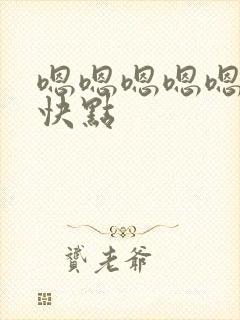 嗯嗯嗯嗯嗯
快點
贙老爺